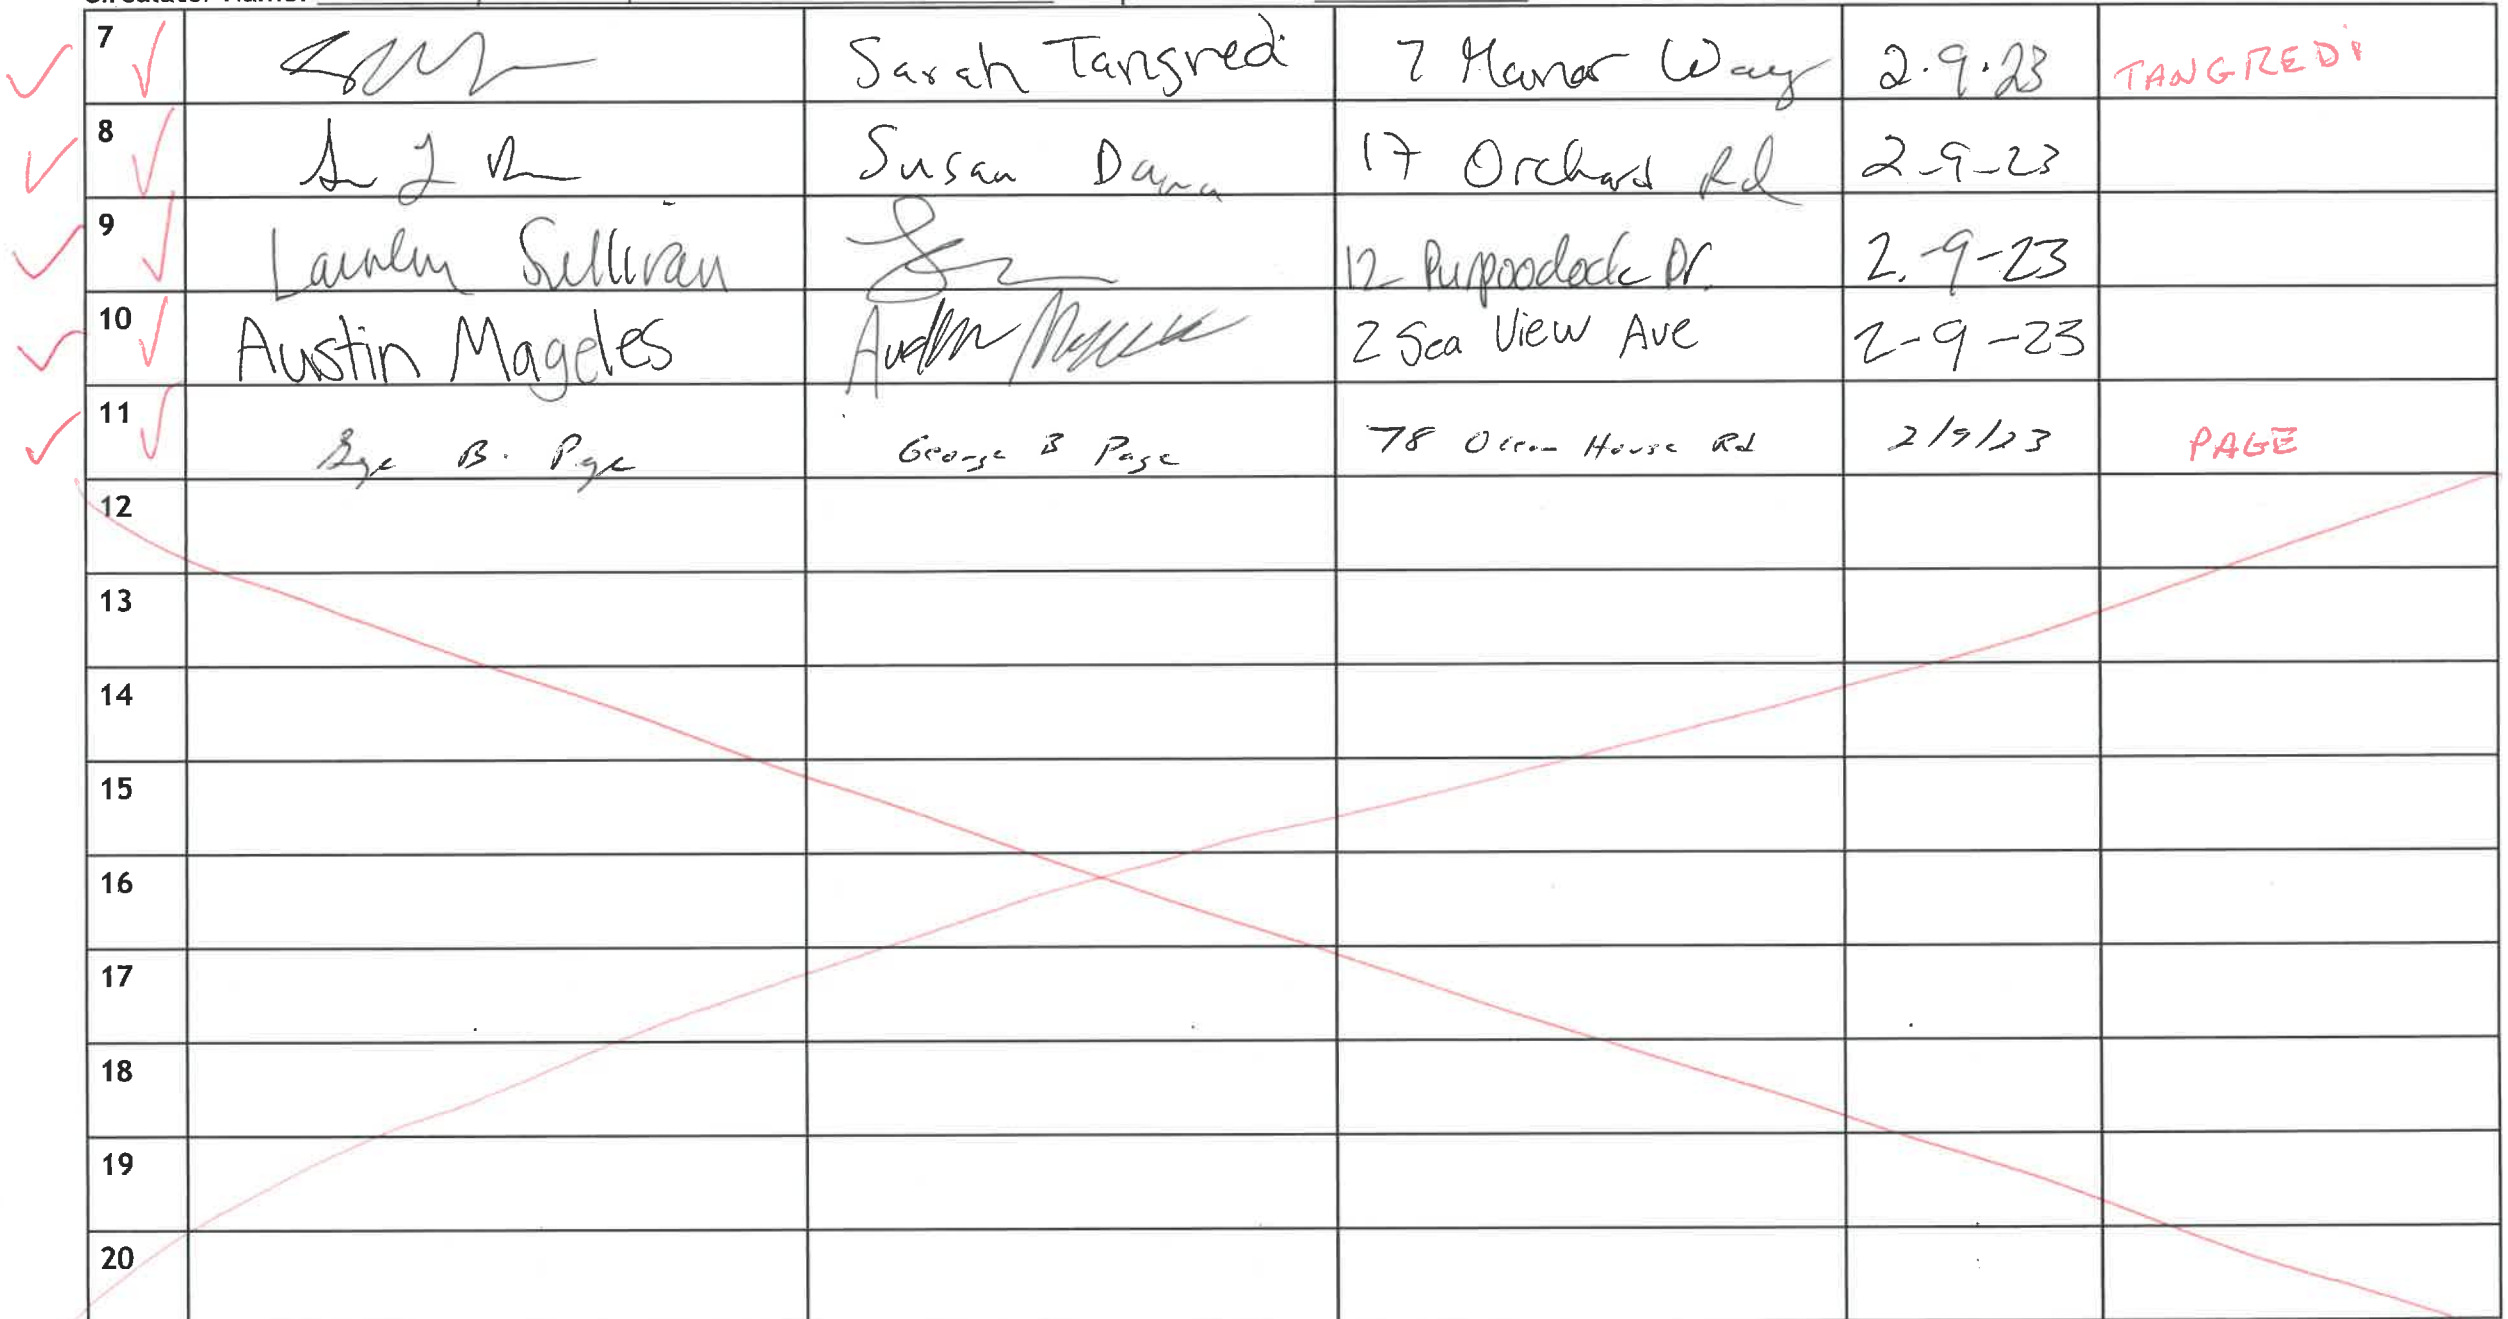 Circulator Name:
7 Sarah Tangredi 7 Manor Way 2.9.23 TANGREDI
8 Susan Dana 17 Orchard Rd 2-9-23
9 Lauren Sullivan 12 Purpoodock Dr. 2-9-23
10 Austin Mageles 2 Sea View Ave 2-9-23
11 George B Page 78 Ocean House Rd 2/9/23 PAGE
12
13
14
15
16
17
18
19
20